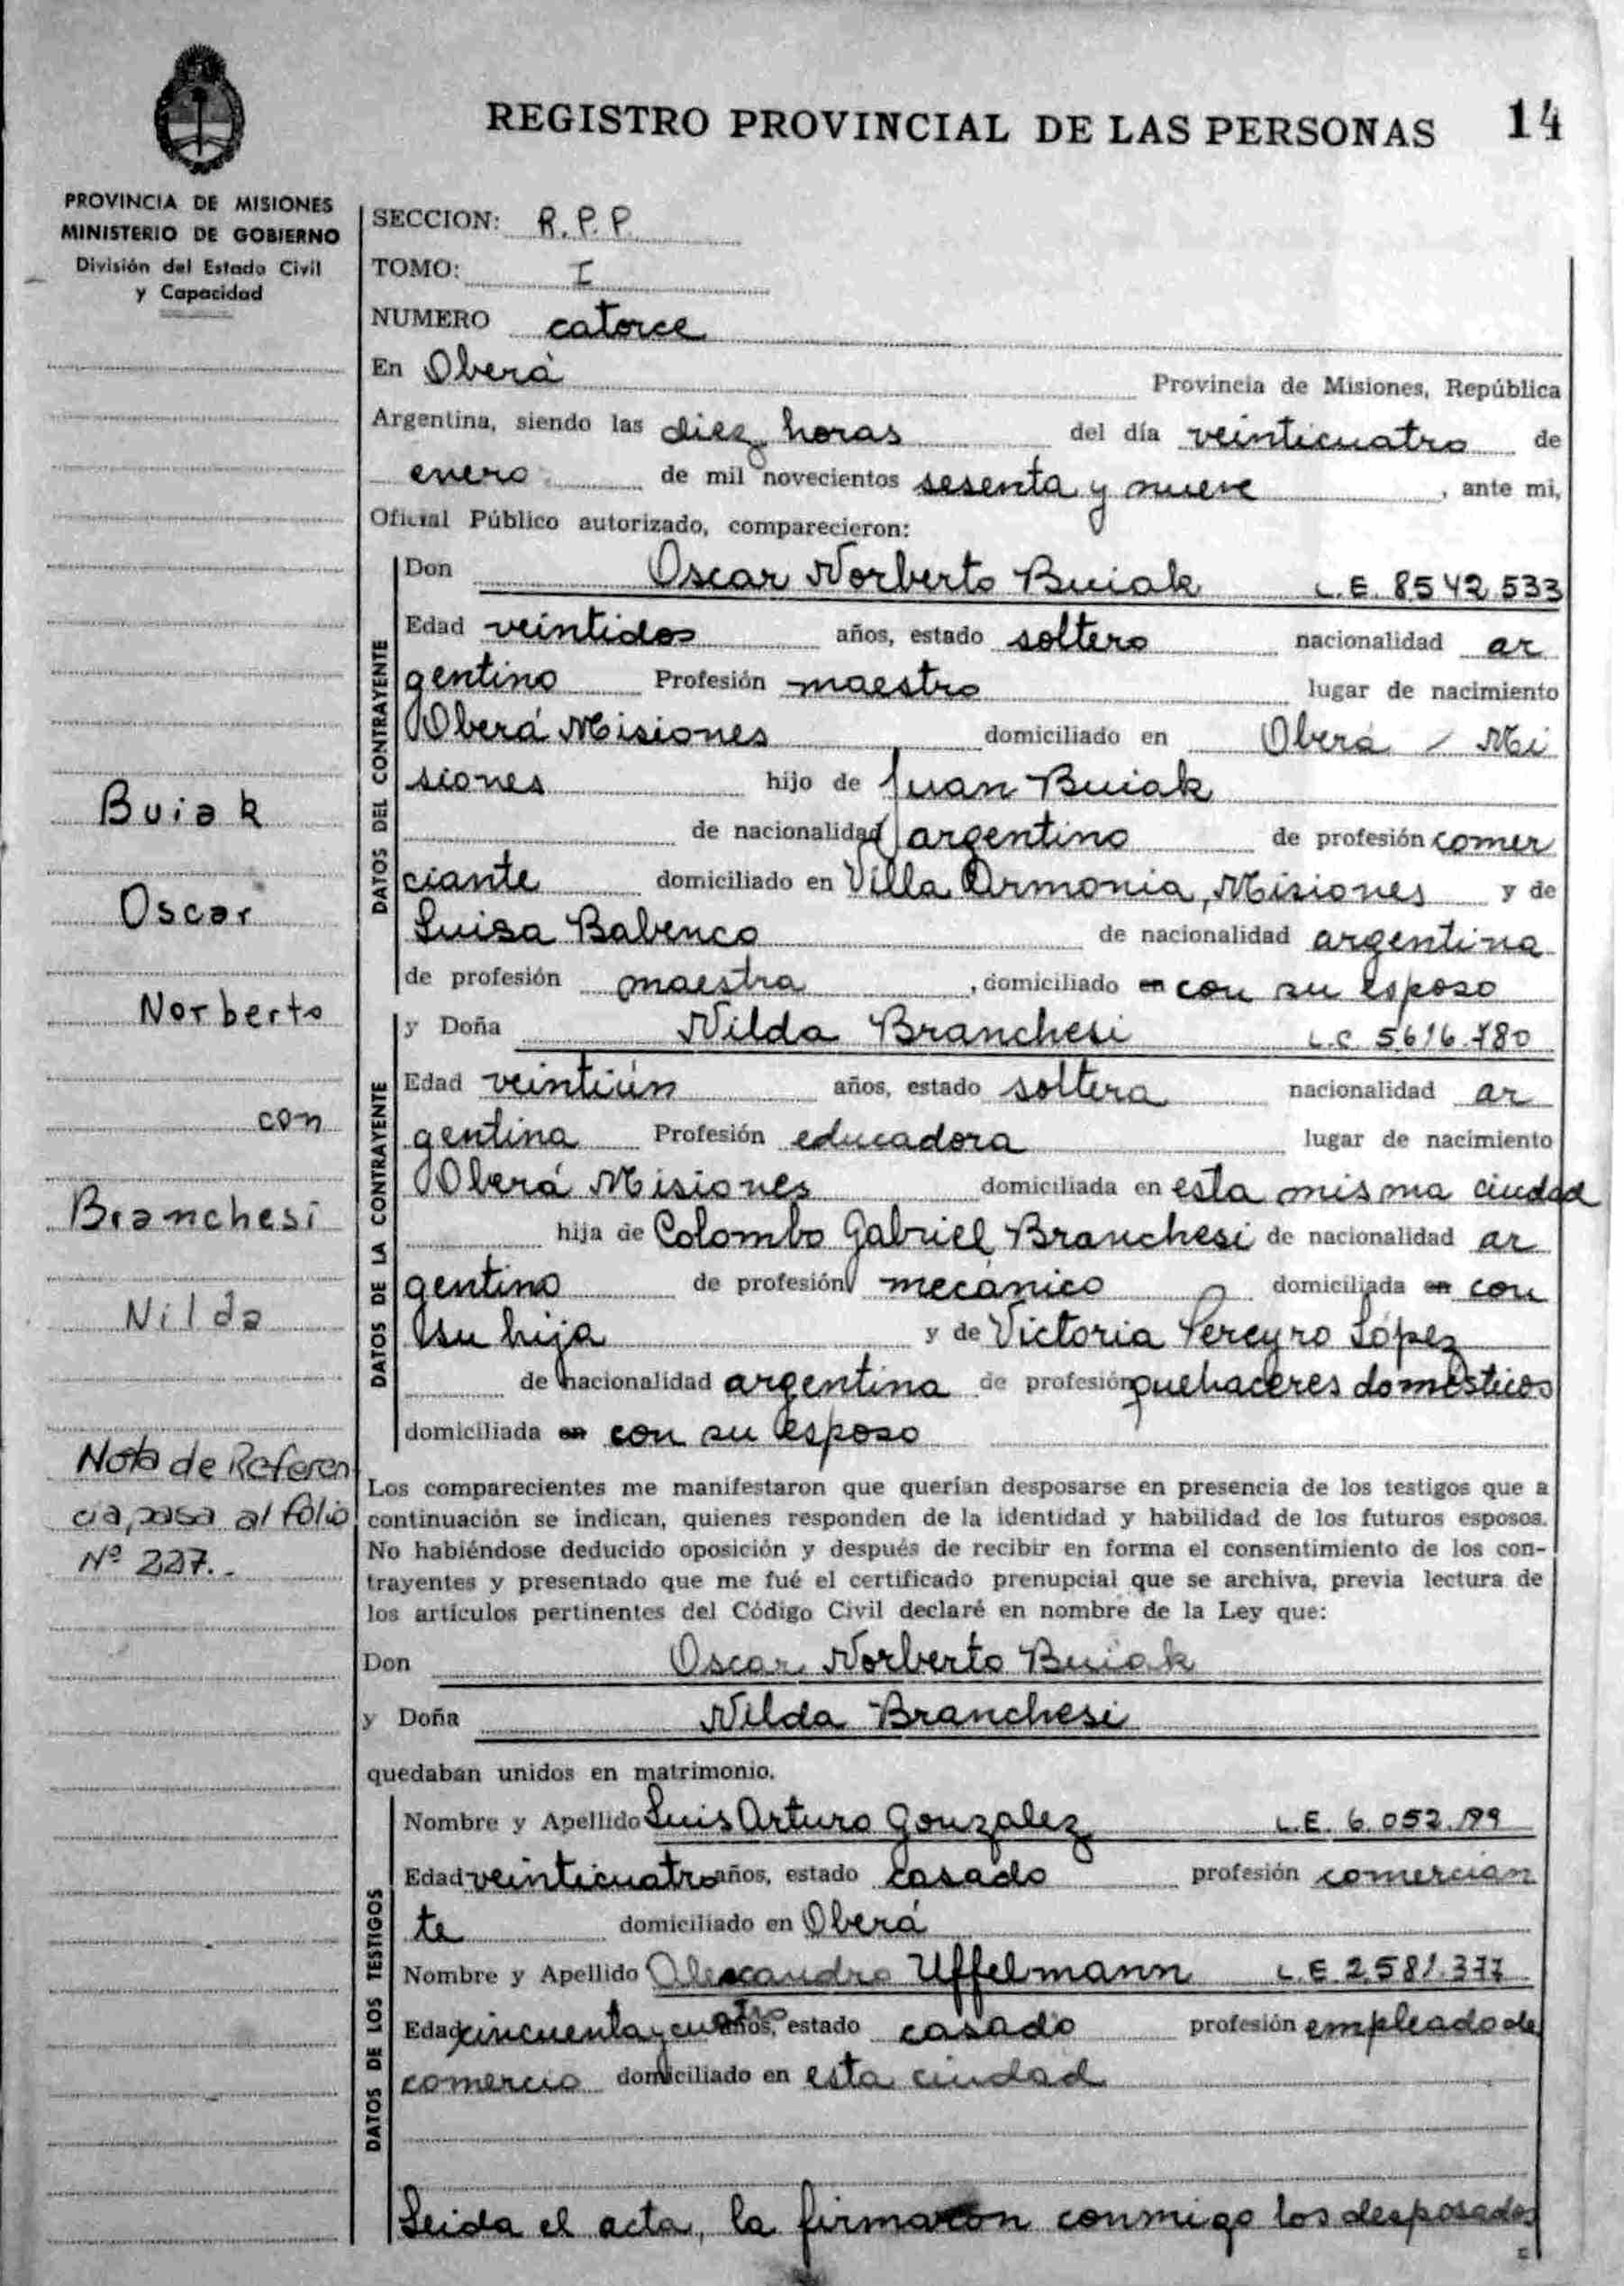 REGISTRO PROVINCIAL DE LAS PERSONAS 14
PROVINCIA DE MISIONES
MINISTERIO DE GOBIERNO
División del Estado Civil
y Capacidad
SECCION: R.P.P.
TOMO: I
NUMERO catorce
En Oberá Provincia de Misiones, República
Argentina, siendo las diez horas del día veinticuatro de
enero de mil novecientos sesenta y nueve, ante mi,
Oficial Público autorizado, comparecieron:
DATOS DEL CONTRAYENTE
Don Oscar Norberto Buiak L.E. 8542533
Edad veintidos años, estado soltero nacionalidad ar
gentino Profesión maestro lugar de nacimiento
Oberá Misiones domiciliado en Oberá / Mi
siones hijo de Juan Buiak
de nacionalidad argentino de profesión comer
ciante domiciliado en Villa Armonia, Misiones y de
Luisa Babenco de nacionalidad argentina
de profesión maestra, domiciliado en con su esposo
DATOS DE LA CONTRAYENTE
y Doña Nilda Branchesi L.C 5616.780
Edad veintiún años, estado soltera nacionalidad ar
gentina Profesión educadora lugar de nacimiento
Oberá Misiones domiciliada en esta misma ciudad
hija de Colombo Gabriel Branchesi de nacionalidad ar
gentino de profesión mecánico domiciliada en con
su hija y de Victoria Pereyro López
de nacionalidad argentina de profesión quehaceres domésticos
domiciliada en con su esposo
Los comparecientes me manifestaron que querían desposarse en presencia de los testigos que a
continuación se indican, quienes responden de la identidad y habilidad de los futuros esposos.
No habiéndose deducido oposición y después de recibir en forma el consentimiento de los con-
trayentes y presentado que me fué el certificado prenupcial que se archiva, previa lectura de
los artículos pertinentes del Código Civil declaré en nombre de la Ley que:
Don Oscar Norberto Buiak
y Doña Nilda Branchesi
quedaban unidos en matrimonio.
DATOS DE LOS TESTIGOS
Nombre y Apellido Luis Arturo Gonzalez L.E. 6.052.199
Edad veinticuatro años, estado casado profesión comercian
te domiciliado en Oberá
Nombre y Apellido Alexandro Uffelmann L.E 2.581.377
Edad cincuenta y cuatro años, estado casado profesión empleado de
comercio domiciliado en esta ciudad
Leida el acta, la firmaron conmigo los desposados
=
Buiak
Oscar
Norberto
con
Branchesi
Nilda
Nota de Referen
cia, pasa al folio
Nº 227.-